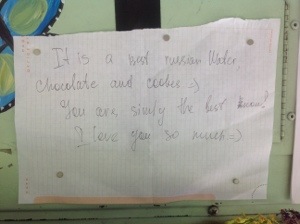 It is a best russian Water,
chocolate and cookies =)
You are simply the best
I love you so much =)